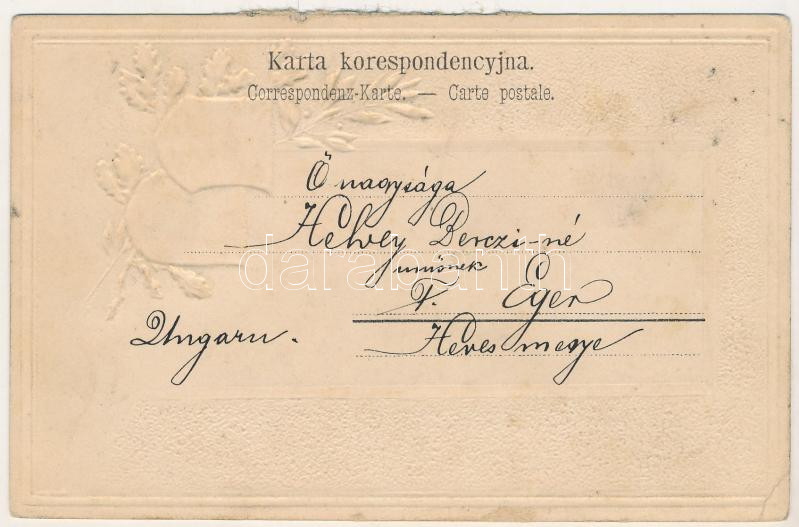 Karta korespondencyjna.
Correspondenz-Karte. — Carte postale.
Ő nagysága
Helvey Berczi-né
F. Eger
Ungarn.
Heves megye
darabanth